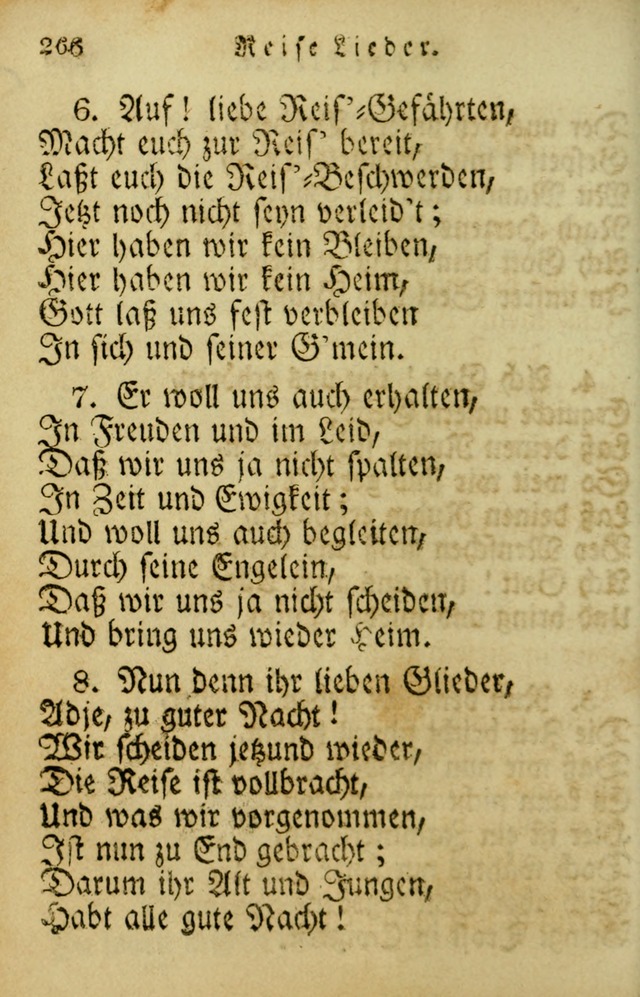 266 Reise Lieder.
6. Auf! liebe Reis'-Gefährten,
Macht euch zur Reis' bereit,
Laßt euch die Reis'-Beschwerden,
Jetzt noch nicht seyn verleid't;
Hier haben wir kein Bleiben,
Hier haben wir kein Heim,
Gott laß uns fest verbleiben
In sich und seiner G'mein.
7. Er woll uns auch erhalten,
In Freuden und im Leid,
Daß wir uns ja nicht spalten,
In Zeit und Ewigkeit;
Und woll uns auch begleiten,
Durch seine Engelein,
Daß wir uns ja nicht scheiden,
Und bring uns wieder Heim.
8. Nun denn ihr lieben Glieder,
Adje, zu guter Nacht!
Wir scheiden jetzund wieder,
Die Reise ist vollbracht,
Und was wir vorgenommen,
Ist nun zu End gebracht;
Darum ihr Alt und Jungen,
Habt alle gute Nacht!